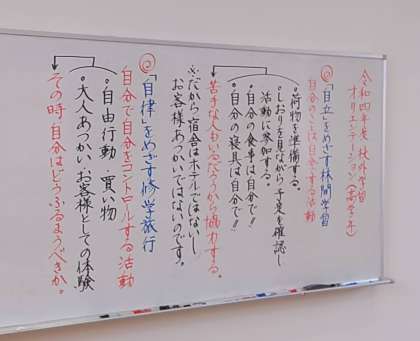 令和四年度 校外学習
オリエンテーション(高学年)
◎「自立」をめざす林間学習
自分のことは自分でする活動
・荷物を準備する。
・しおりを見ながら予定を確認し
活動に参加する。
・自分の食事は自分で!!
・自分の寝具は自分で!!
苦手な人もいるだろうから協力する。
※だから宿舎はホテルではないし
お客様あつかいではないのです。
◎「自律」をめざす修学旅行
自分で自分をコントロールする活動
・自由行動・買い物
・大人あつかい・お客様としての体験
その時自分はどうふるまうべきか。